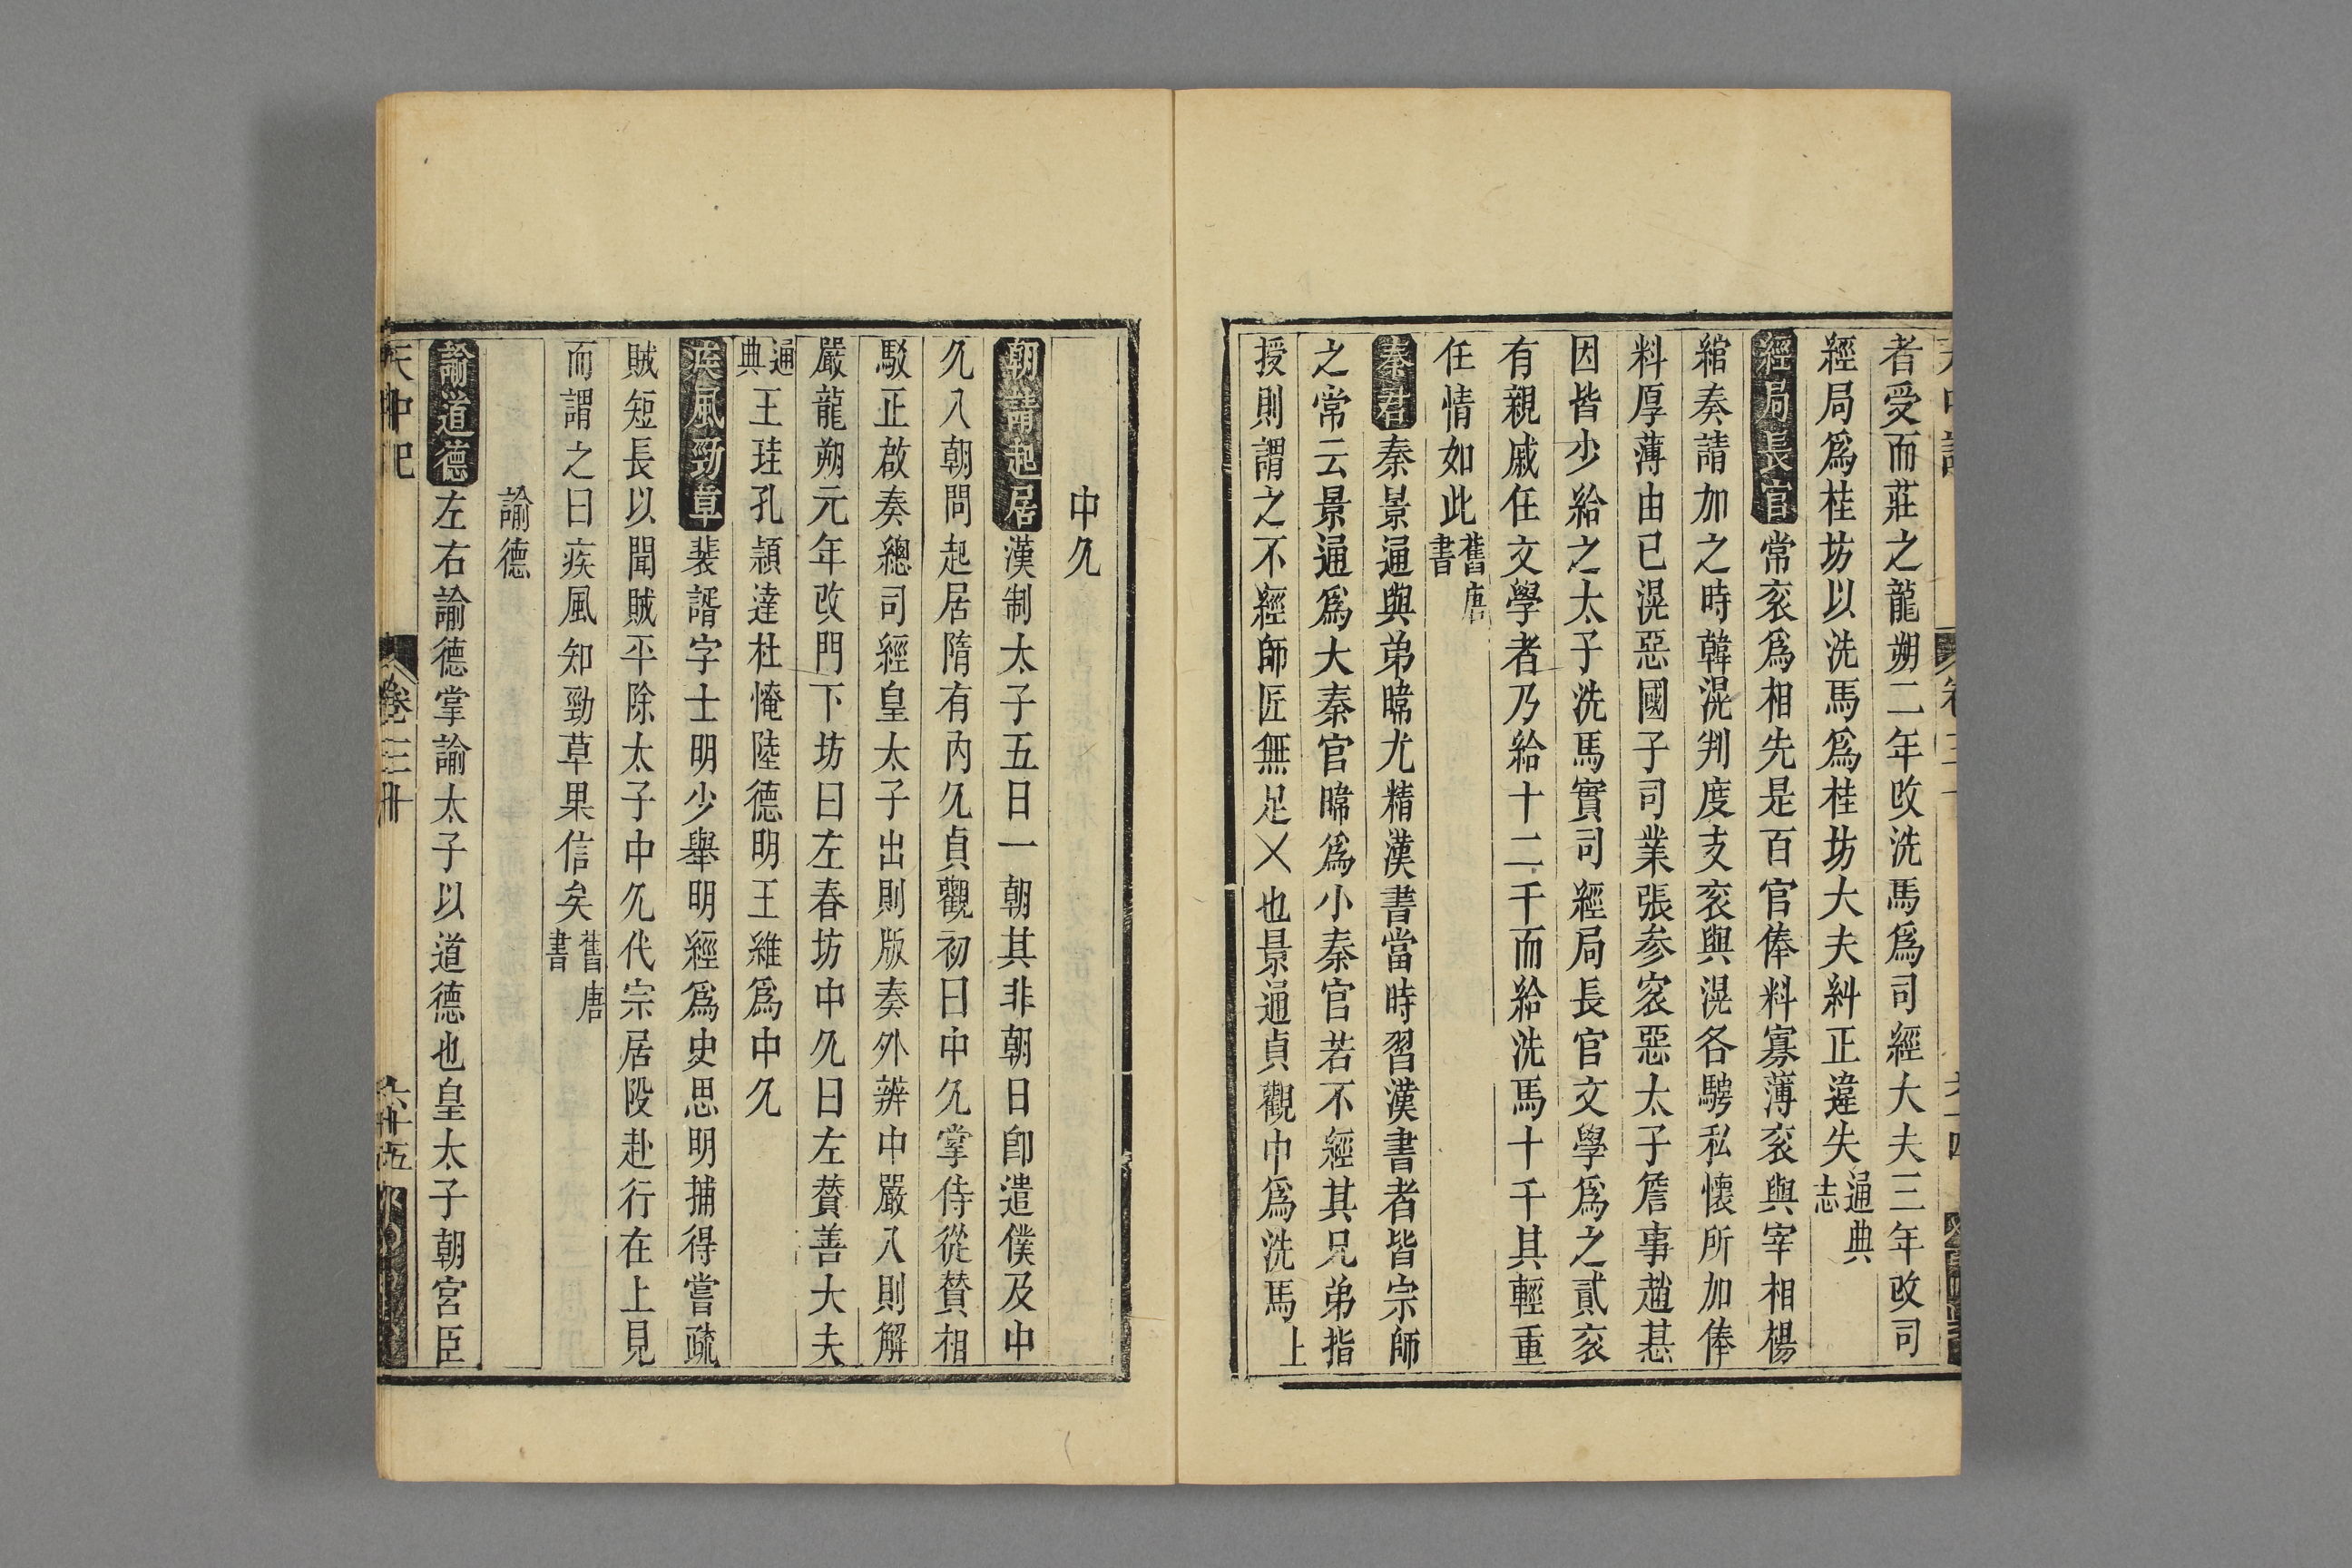 者受而莊之龍朔二年改洗馬爲司經大夫三年改司
經局爲桂坊以洗馬爲桂坊大夫糾正違失通典志
經局長官常袞爲相先是百官俸料寡薄袞與宰相楊
綰奏請加之時韓滉判度支袞與滉各騁私懷所加俸
料厚薄由已滉惡國子司業張參袞惡太子詹事趙惎
因皆少給之太子洗馬實司經局長官文學爲之貳袞
有親戚任文學者乃給十二千而給洗馬十千其輕重
任情如此舊唐書
秦君秦景通與弟暐尤精漢書當時習漢書者皆宗師
之常云景通爲大秦官暐爲小秦官若不經其兄弟指
授則謂之不經師匠無足乂也景通貞觀中爲洗馬上
中允
朝請起居漢制太子五日一朝其非朝日卽遣僕及中
允入朝問起居隋有內允貞觀初曰中允掌侍從贊相
駁正啟奏總司經皇太子出則版奏外辨中嚴入則解
嚴龍朔元年改門下坊曰左春坊中允曰左贊善大夫
通典王珪孔頴達杜惓陸德明王維爲中允
疾風勁草裴諝字士明少舉明經爲史思明捕得嘗疏
賊短長以聞賊平除太子中允代宗居陜赴行在上見
而謂之曰疾風知勁草果信矣舊唐書
諭德
諭道德左右諭德掌諭太子以道德也皇太子朝宮臣
天中記 卷三十 六十五